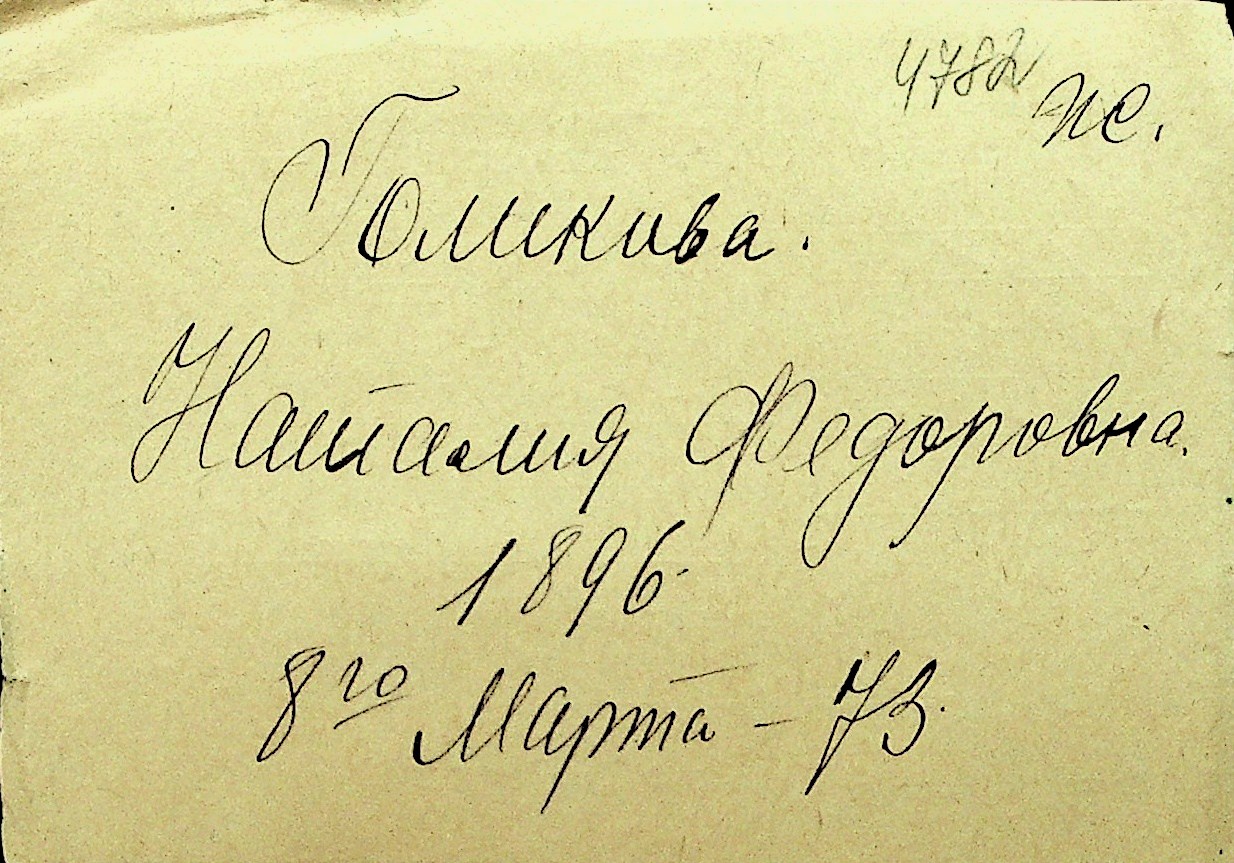 4782
пс.
Голикова.
Наталия Федоровна.
1896
8го Марта - 73.